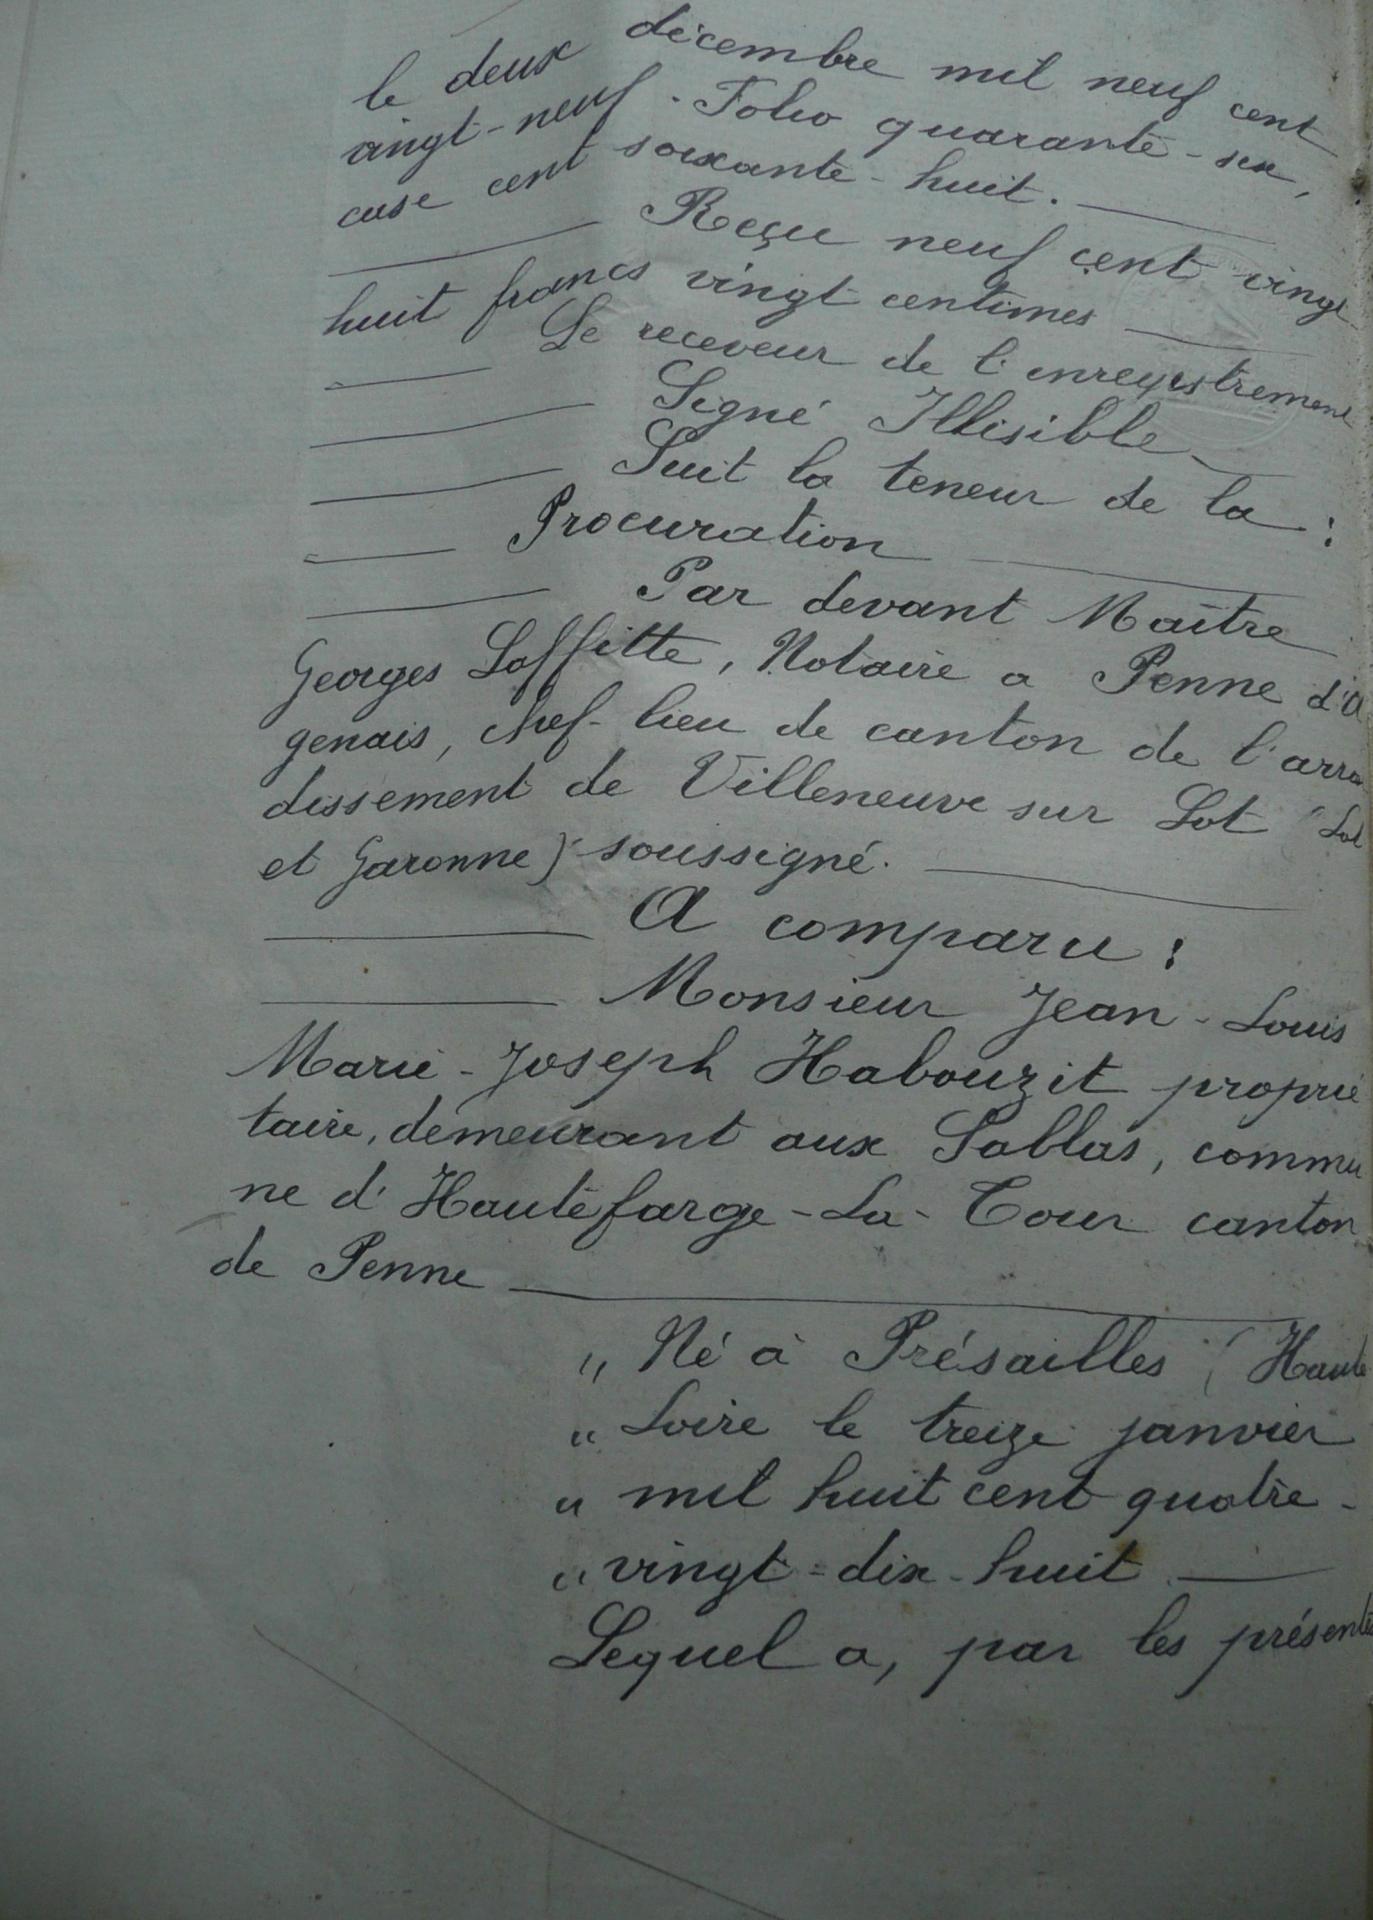 le deux décembre mil neuf cent
vingt-neuf. Folio quarante-six,
case cent soixante-huit.
Reçu neuf cent vingt
huit francs vingt centimes
Le receveur de l'enregistrement
Signé Illisible
Suit la teneur de la :
Procuration
Par devant Maître
Georges Laffitte, Notaire a Penne d'A
genais, chef-lieu de canton de l'arron
dissement de Villeneuve sur Lot (Lot
et Garonne) soussigné.
A comparu :
Monsieur Jean-Louis
Marie-Joseph Habouzit proprié
taire, demeurant aux Sablas, commu
ne d'Hautefarge-La-Tour canton
de Penne
" Né à Présailles (Haute
" Loire le treize janvier
" mil huit cent quatre-
" vingt-dix-huit
Lequel a, par les présentes